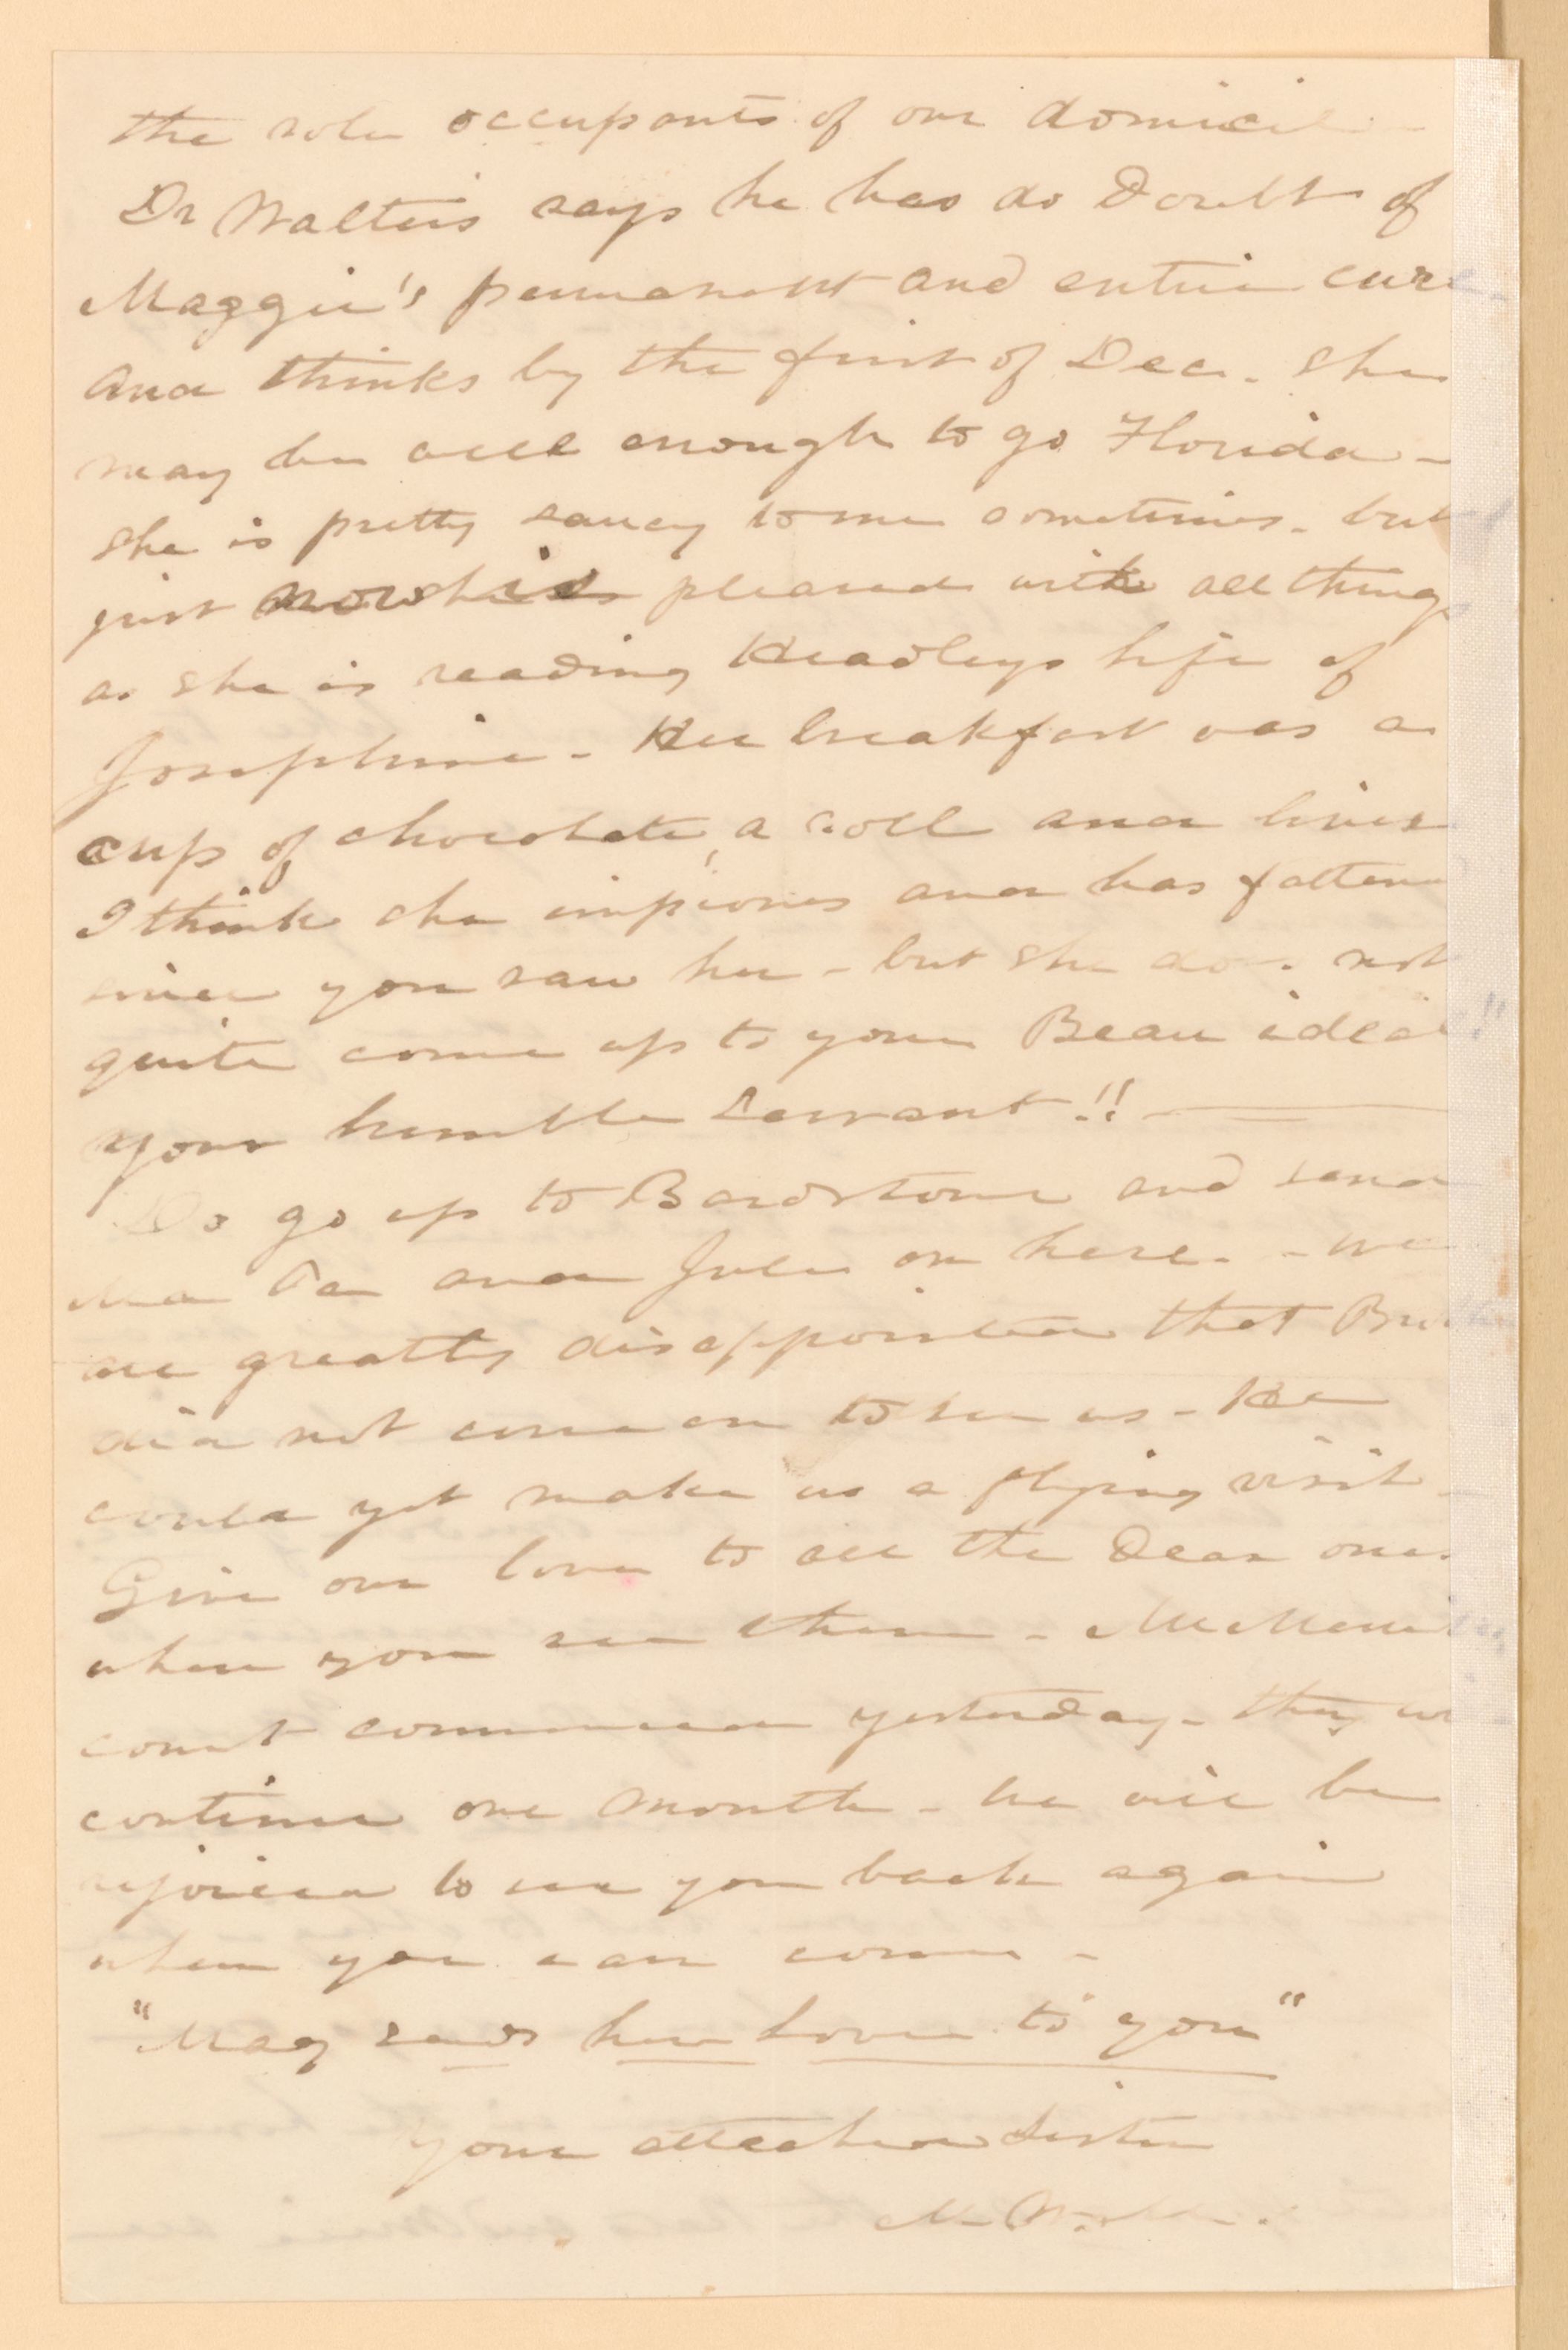 the sole occupants of our domicil -
Dr Walters says he has no Doubt of
Maggie's permanent and entire cure
and thinks by the first of Dec. she
may be well enough to go Florida -
she is pretty saucy to me sometimes - but
just now she is pleased with all things
as she is reading Headleys life of
Josephine - Her breakfast was a
cup of chocolate, a roll and liver
I think she improves and has fattened
since you saw her - but she does not
quite come up to your Beau ideal
your humble servant!! -
Do go up to Bardstown and send
Ma Pa and Jule on here. - we
are greatly disappointed that
did not come on to see us - He
could yet make us a flying visit -
Give our love to all the Dear ones
when you see them -
court commenced yesterday - they
continue one month - he will be
rejoiced to see you back again
when you can come -
"Mag sends her love to you"
your attached sister
M.